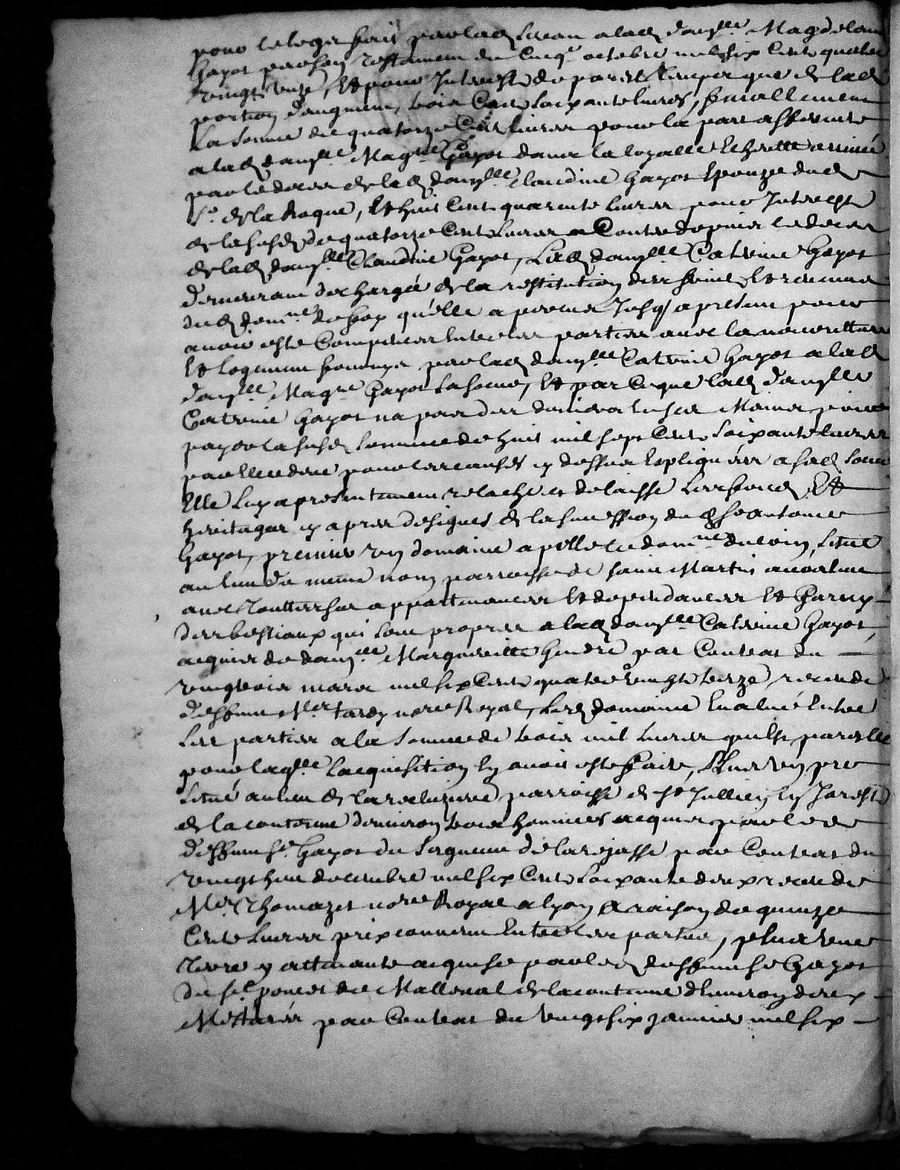 pour le legs fait par lad. a lad. damlle Magdelaine
Gayot par son testament du cinqe octobre mil six cent quatre
vingt unze, et pour Interest de pareil temps que de lad.
portion d'augment, trois Cent soixante livres, finallement
La somme de quatorze Cent livres pour la part afferente
a lad. damlle Magne Gayot dans la
par le deces de lad. damlle Claudine Gayot Epouze dud.
Sr. de la Roque, Et huit Cent quarante livres pour Interest
de lesusd. de quatorze Cent Livres a Conter depuis le deces
de lad. damlle Claudine Gayot, Lad. damlle Catrine Gayot
demeurant dechargée de la restitution des fruits et revenus
dud. domne qu'elle a perceu Jusq. a present pour
avoir esté Compencés Entre les parties avec la nourriture
Et logement fournys par lad. damlle Catrine Gayot a lad.
damlle Magne Gayot sa soeur, Et par ce que lad. damlle
Catrine Gayot na pas des deniers En ses Mains pour
payer la susd. somme de huit mil sept Cent soixante livres
par Elle deue pour les causes cy dessus Expliquées a sad. soeur
Elle Luy a presentement relaché et delaissé Les fonds Et
heritages cy apres designés de la succession dud. feu antoine
Gayot, premier un domaine apellé le domne du coin, situé
au lieu du meme nom parroisse de saint Martin
avec touttes ses appartenances Et dependances Et Garny
des bestiaux qui sont propres a lad. damlle Catrine Gayot,
acquis de damlle Margueritte par Contrat du
vingt trois mars mil six Cent quatre vingt treize, receu de
deffunt Mre tardy nore Royal, Led. domaine Evalué Entre
Les parties a la somme de trois mil livres qui est pareille
pour laqlle lacquisition En avoit esté faite, plus un pré
situé au lieu de parroisse de st Jullien En Jarest
de la contenue denviron trois hommées acquis par led.
deffunt sr. Gayot du seigneur de la par Contrat du
vingt huit decembre mil six Cent soixante deux receu de
Mre Thomazet nore Royal a lyon a raison de quinze
Cent Livres prix convenu Entre les parties, plus une
terre y attenante acquise par led. deffunt sr Gayot
du sr. poncet de de la contenue denviron deux
Metterés par Contrat du vingt six janvier mil six